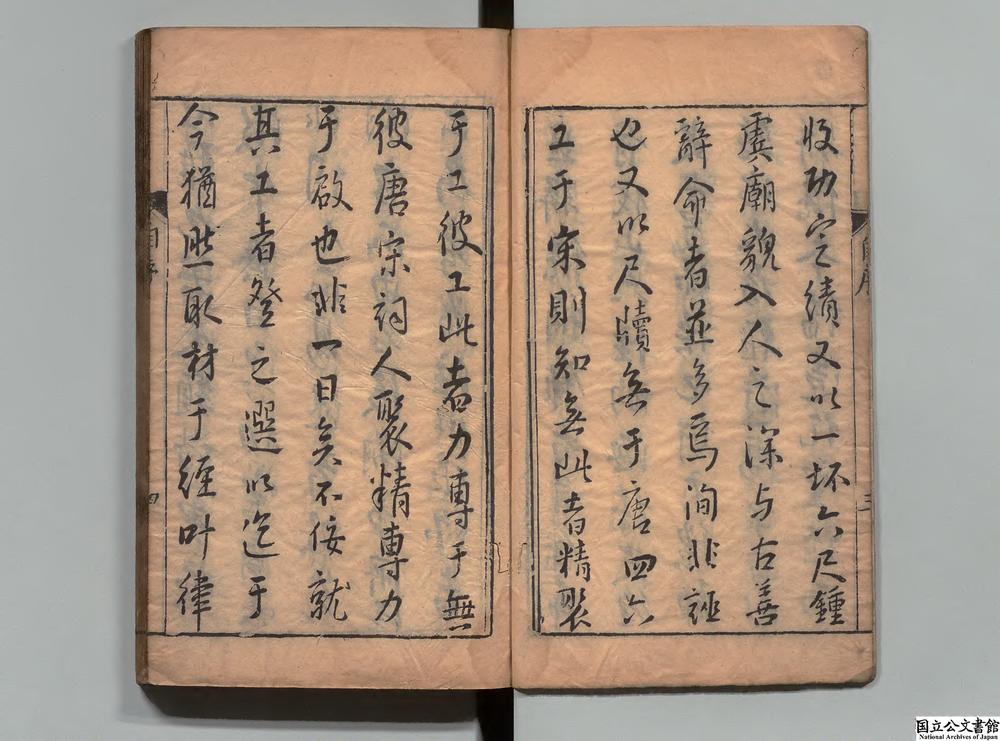 收功定績又以一坏六尺鍾
虞廟貌入人之深与古善
辭命者並多焉洵非誣
也又以尺牘無于唐四六
工于宋則知無此者精聚
三
于工彼工此者力專于無
彼唐宋詞人聚精專力
于啟也非一日矣不佞就
其工者登之選以迄于
今猶然取材于經叶律
自序
四
国立公文書館
National Archives of Japan